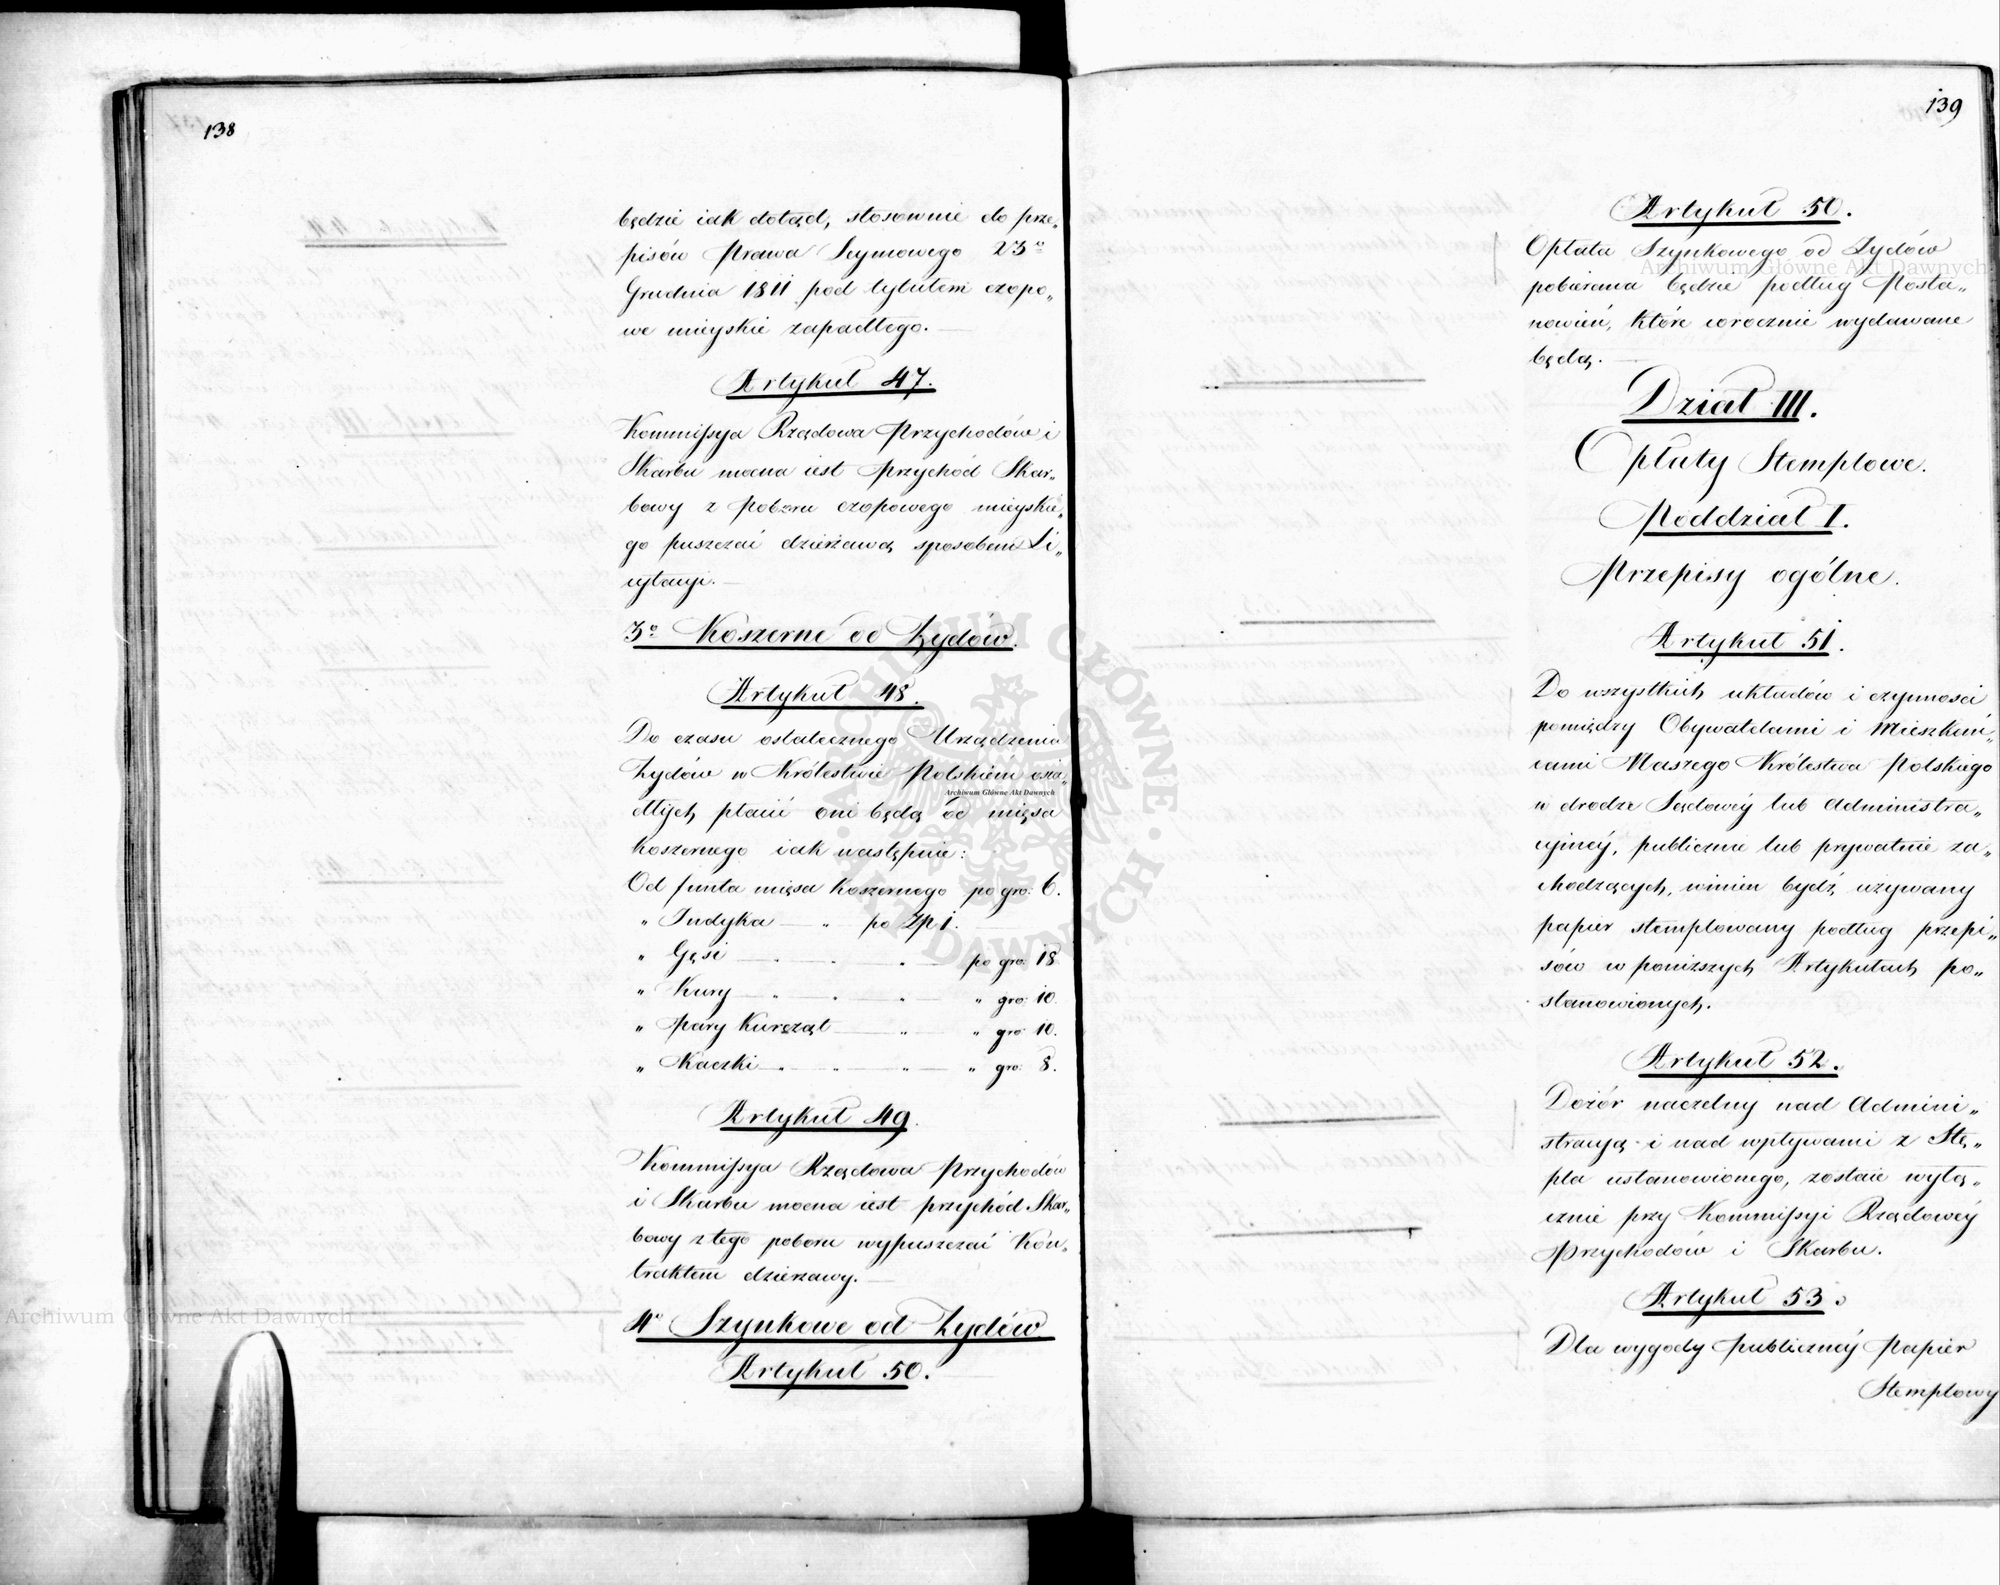 138
będzie iak dotąd, stosownie do prze„
pisów Prawa Seymowego 23º
Grudnia 1811 pod tytułem czopo„
we mieyskie zapadłego. —
Artykuł 47.
Kommissya Rządowa Przychodów i
Skarbu mocna iest Przychód Skar„
bowy z poboru czopowego mieyskie„
go puszczać dzierżawą sposobem Li„
cytacyi. —
3º Koszerne od Żydów.
Artykuł 48.
Do czasu ostatecznego Urządzenia
Żydów w Królestwie Polskiém osia„
dłych płacić oni będą od mięsa
koszernego iak następuie:
Od funta mięsa koszernego po gro: 6.
„ Indyka — „ po Zp 1.
„ Gęsi — „ „ — po gro: 18
„ Kury — „ „ — „ gro: 10.
„ pary Kurcząt — „ — „ gro: 10.
„ Kaczki — „ „ — „ gro: 8.
Artykuł 49.
Kommissya Rządowa Przychodów
i Skarbu mocna iest przychód Skar„
bowy z tego poboru wypuszczać Kon„
traktem dzierżawy. —
4º Szynkowe od Żydów
Artykuł 50.
139
Artykuł 50.
Opłata Szynkowego od Żydów
pobierana będzie podług Posta„
nowień, które corocznie wydawane
będą. —
Dział III.
Opłaty Stemplowe.
Poddział I.
Przepisy ogólne.
Artykuł 51.
Do wszystkich układów i czynności
pomiędzy Obywatelami i Mieszkań„
cami Naszego Królestwa Polskiego
w drodze Sądowéy lub Administra„
cyinéy, publicznie lub prywatnie za„
chodzących, winien bydź używany
papier stemplowany podług przepi„
sów w poniższych Artykułach po„
stanowionych.
Artykuł 52.
Dozór naczelny nad Admini„
stracyą i nad wpływami z Stę„
pla ustanowionego, zostaie wyłą„
cznie przy Kommissyi Rządowéy
Przychodów i Skarbu.
Artykuł 53.
Dla wygody publicznéy Papier
Stemplowy
Archiwum Główne Akt Dawnych
Archiwum Główne Akt Dawnych
Archiwum Główne Akt Dawnych
ARCHIWUM GŁÓWNE · AKT DAWNYCH ·